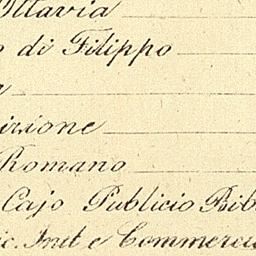 Ottavia
o di Filippo
a
irione
Romano
Cajo Publicio Bib
ic. Instit e Commercia